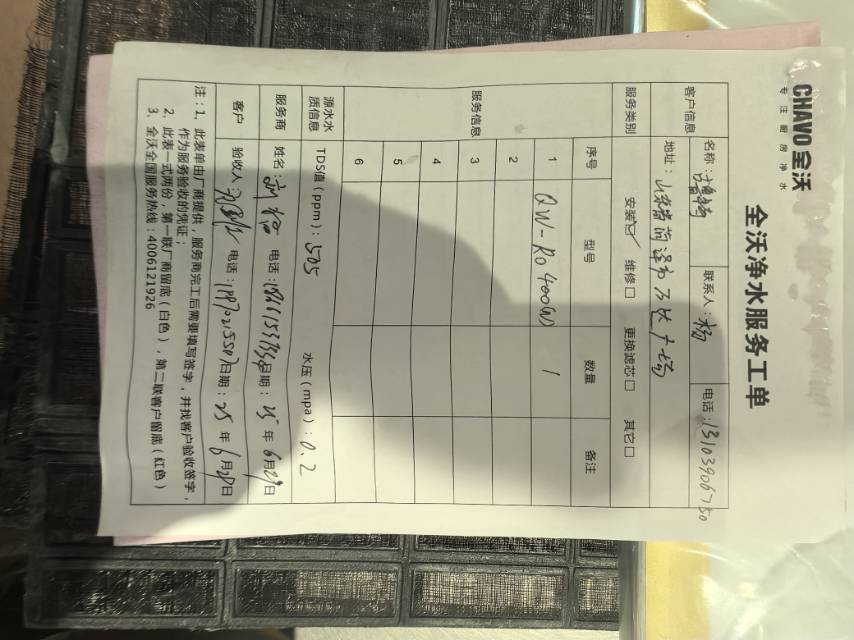 CHAVO 全沃
专注厨房净水
全沃净水服务工单
客户信息 名称: 联系人:杨 电话:13103906750
地址:山东省菏泽市万达广场
服务类别 安装☑ 维修□ 更换滤芯□ 其它□
服务信息 序号 型号 数量 备注
1 QW-RO400G 1
2
3
4
5
6
源水水质信息 TDS值(ppm):505 水压(mpa):0.2
服务商 姓名: 电话: 日期:25年6月29日
客户 验收人: 电话: 日期:25年6月29日
注:1、此表单由厂商提供,服务商完工后需要填写签字,并找客户验收签字,
作为服务验收的凭证;
2、此表一式两份,第一联厂商留底(白色),第二联客户留底(红色)
3、全沃全国服务热线:4006121926